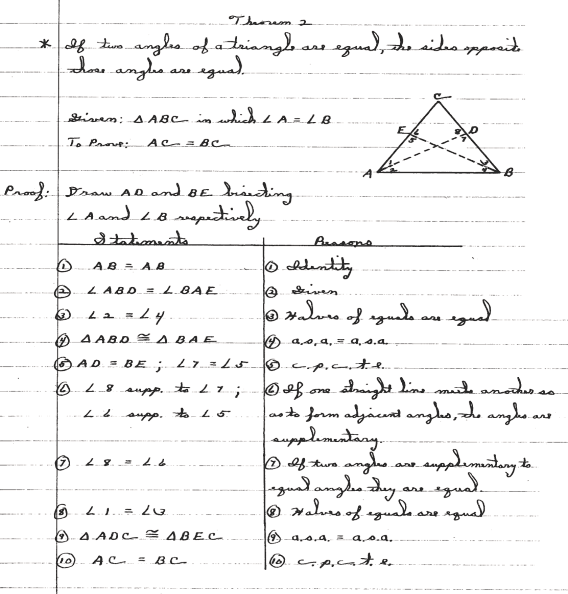 Theorem 2
* If two angles of a triangle are equal, the sides opposite
those angles are equal.
Given: △ABC in which ∠A = ∠B
To Prove: AC = BC
C
E 6 8 D
5 7
A 1 2 3 4 B
Proof: Draw AD and BE bisecting
∠A and ∠B respectively
Statements Reasons
① AB = AB ① Identity
② ∠ABD = ∠BAE ② Given
③ ∠2 = ∠4 ③ Halves of equals are equal
④ △ABD ≅ △BAE ④ a.s.a. = a.s.a.
⑤ AD = BE ; ∠7 = ∠5 ⑤ c.p.c.t.e.
⑥ ∠8 supp. to ∠7 ; ⑥ If one straight line meets another so
∠6 supp. to ∠5 as to form adjacent angles, the angles are
supplementary.
⑦ ∠8 = ∠6 ⑦ If two angles are supplementary to
equal angles they are equal.
⑧ ∠1 = ∠3 ⑧ Halves of equals are equal
⑨ △ADC ≅ △BEC ⑨ a.s.a. = a.s.a.
⑩ AC = BC ⑩ c.p.c.t.e.